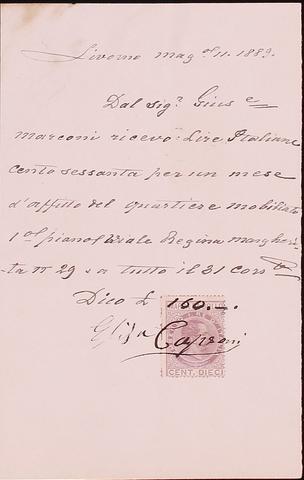 Livorno mag.º 11. 1889.
Dal sig.r Gius.e
Marconi ricevo: Lire Italiane
cento sessanta per un mese
d'affitto del quartiere mobiliato
1º piano Viale Regina Margheri-
-ta nº 29 - a tutto il 31 cors.te
Dico £ 160.-.
Caproni
CENT. DIECI